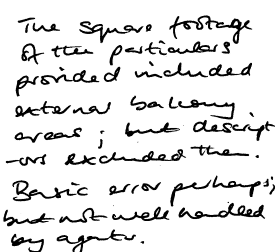 The square footage
of the particulars
provided included
external balcony
areas; but descript
-ors excluded them.
Basic error perhaps;
but not well handled
by agents.